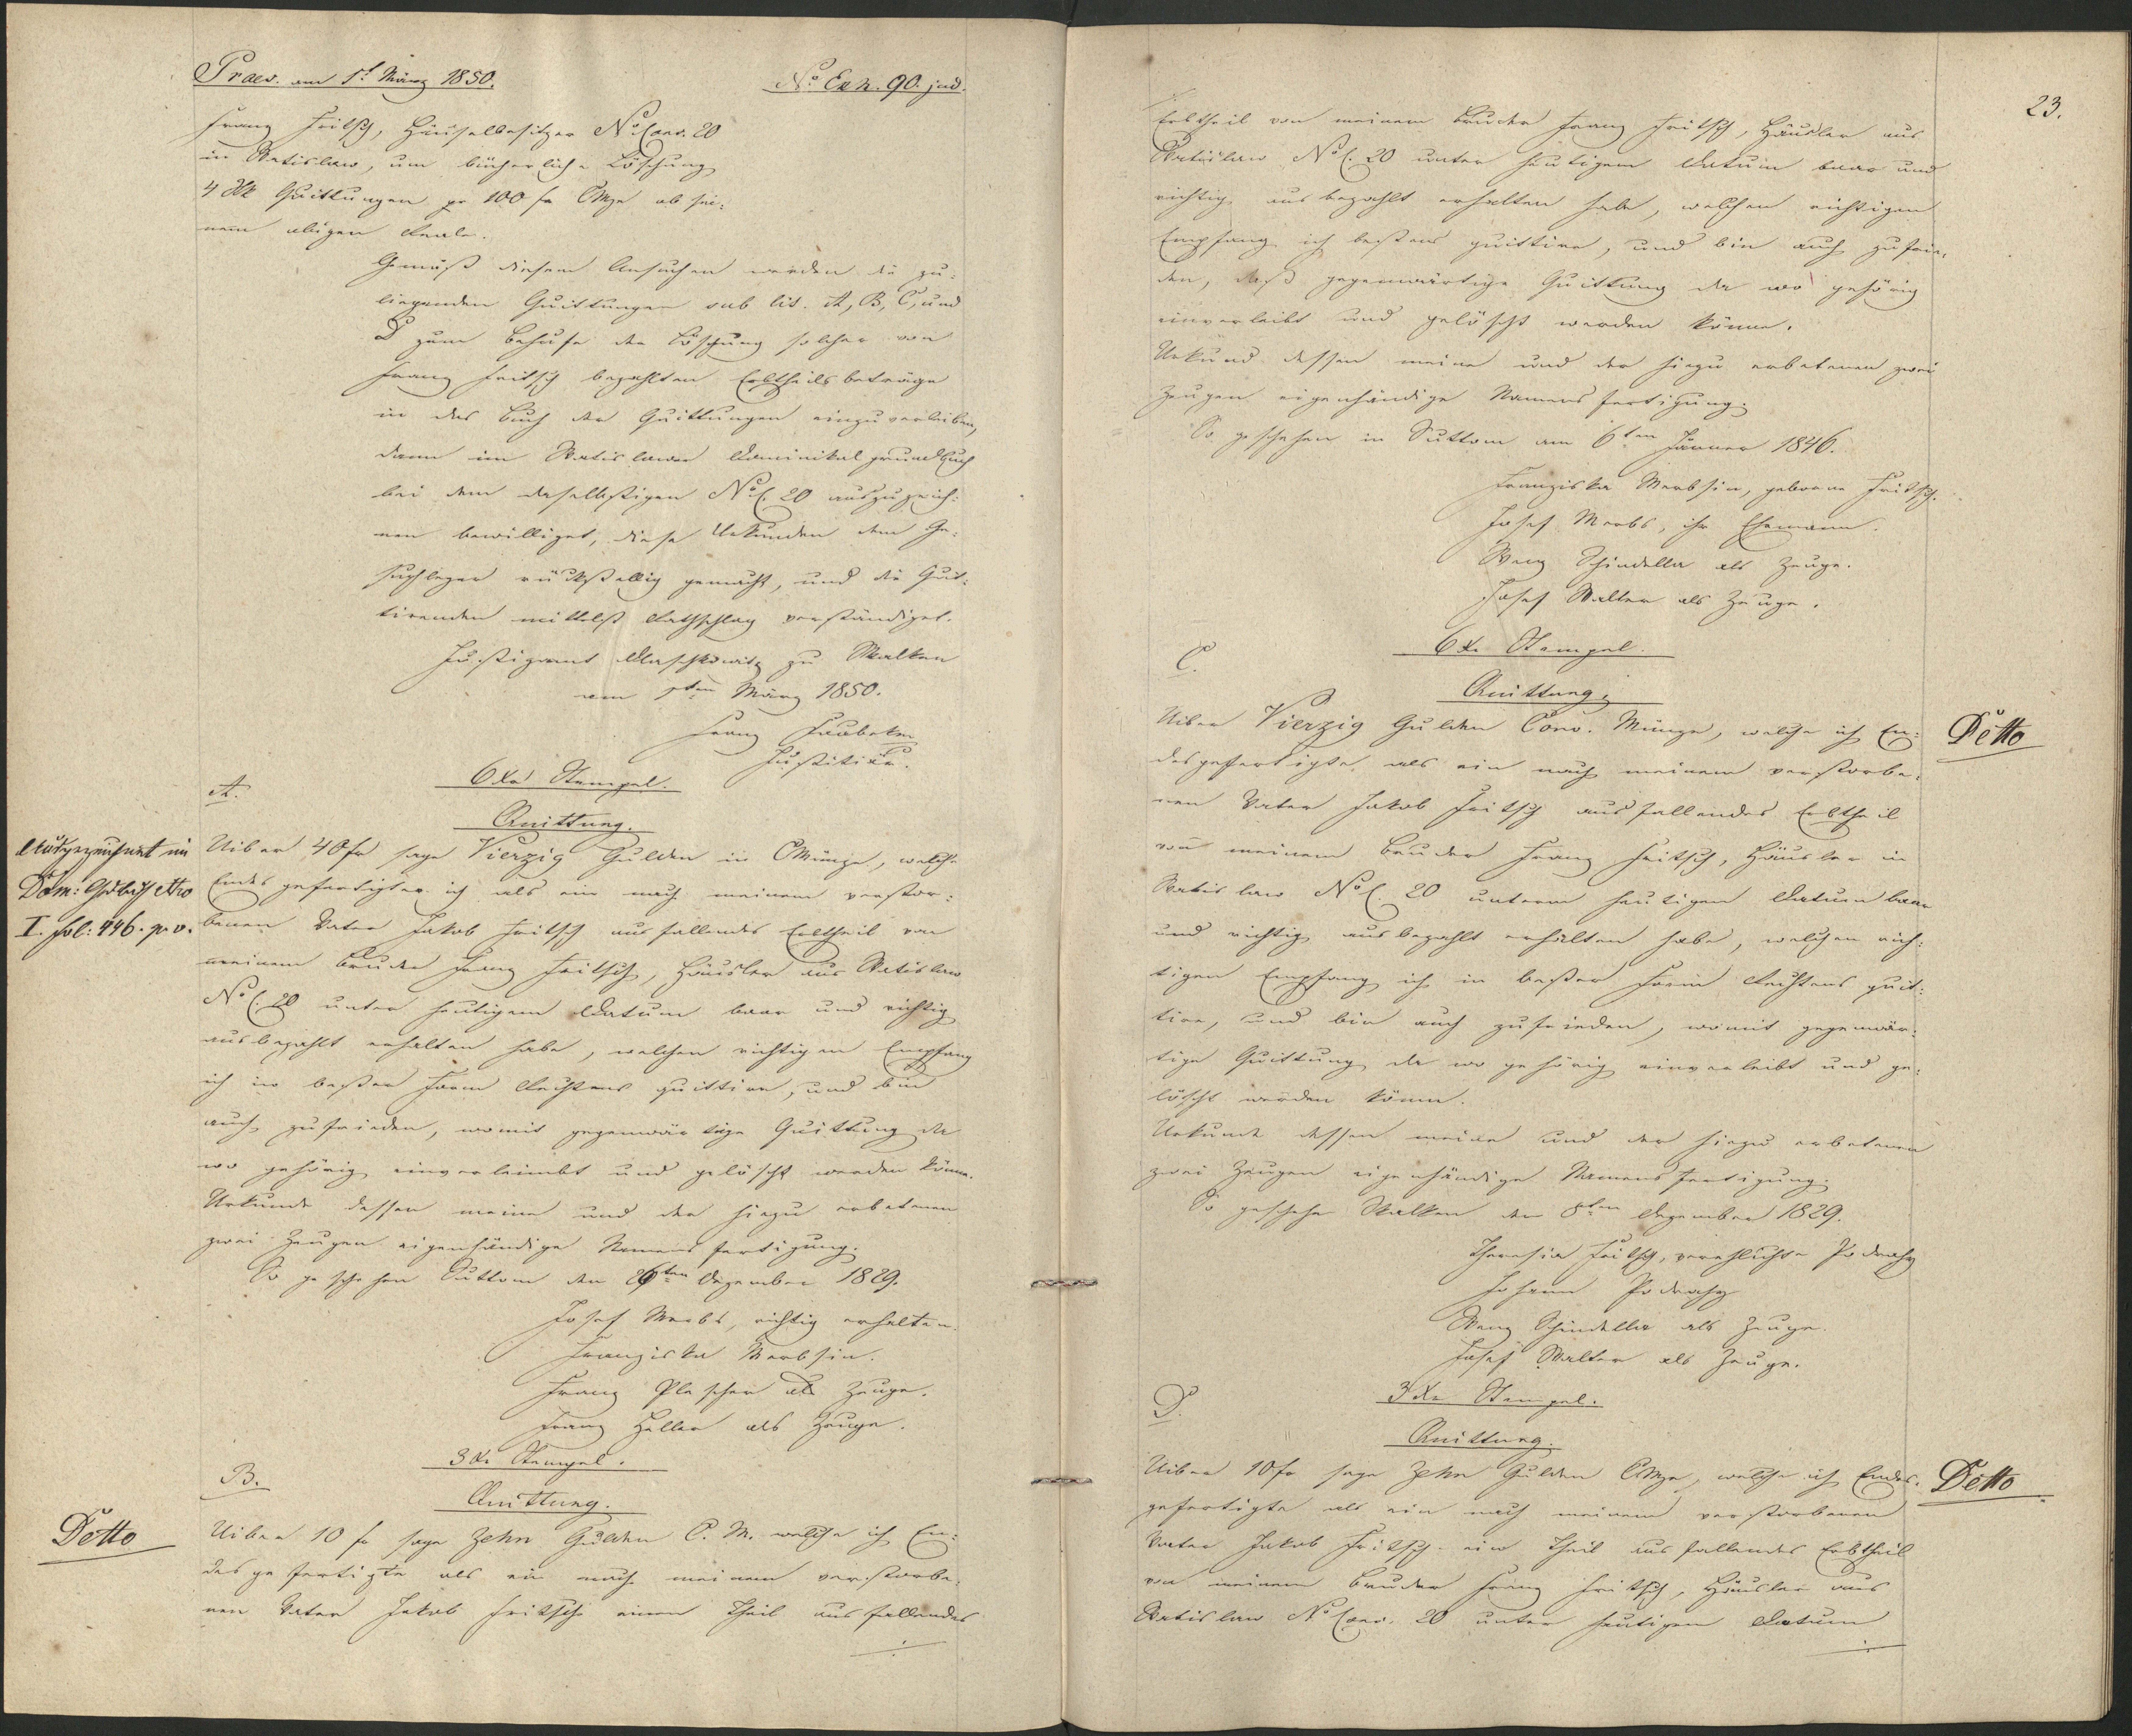 Praes. am 1t März 1850.
No Exh. 90. jud.
Franz Fritsch, Häuselbesitzer No Cons. 20
in Watislaw, um bücherliche Löschung
4 Stk Quittungen pr 100 fr CMze ob sei:
nem obigen Reale.
Gemäß diesem Ansuchen werden die zu:
liegenden Quittungen sub lit. A, B, C, und
D zum Behufe der Löschung solcher von
Franz Fritsch bezahlten Erbtheilsbeträge
in das Buch der Quittungen einzuverleiben,
dann im Watislawer Dominikal grundbuch
bei dem daselbstigen No C. 20 auszuzeich:
nen bewilliget, diese Urkunden dem Ge:
suchleger rückstellig gemacht, und die Quit:
tirenden mittelst Rathschlag verständiget.
Justizamt Dlaschkowitz zu Skalken
am 1ten März 1850.
Franz
Justitiär.
A.
6 Xr Stempel.
Quittung.
Ausgezeichnet im
Dom: Gdbuch Nro
I. fol: 446. p. v.
Uiber 40 fr sage Vierzig Gulden in CMünze, welche
Endesgefertigter ich als ein nach meinem verstor:
benen Vater Jakob Fritsch ausfallendes Erbtheil von
meinem Bruder Franz Fritsch, Häusler aus Watislaw
No C. 20 unter heutigem Datum baar und richtig
ausbezahlt erhalten habe, welchen richtigen Empfang
ich in bester Form Rechtens quittire, und bin
auch zufrieden, womit gegenwärtige Quittung da
wo gehörig einverleimbt und gelöscht werden könne.
Urkunde dessen meine und der hiezu erbetenen
zwei Zeugen eigenhändige Namensfertigung.
So geschehen Suttom den 26ten Dezember 1829.
Josef Merbs, richtig erhalten.
Franziska Merbsin.
Franz Plescher als Zeuge.
Franz Haller als Zeuge.
3 Xr Stempel.
B.
Quittung.
Detto
Uiber 10 fr sage Zehn Gulden C. M. welche ich En:
desgefertigte als ein nach meinem verstorbe:
nen Vater Jakob Fritsch einen Theil ausfallendes
23.
Erbtheil von meinem Bruder Franz Fritsch, Häusler aus
Watislaw No C. 20 unter heutigem Datum baar und
richtig ausbezahlt erhalten habe, welchen richtigen
Empfang ich bestens quittire, und bin auch zufrie:
den, daß gegenwärtige Quittung da wo gehörig
einverleibt und gelöscht werden könne.
Urkund dessen meine und der hiezu erbetenen zwei
Zeugen eigenhändige Namensfertigung.
So geschehen in Suttom am 6ten Jänner 1846.
Franziska Merbsin, geborne Fritsch.
Josef Merbs, ihr Ehemann.
Wenz Schindella als Zeuge.
Josef Walter als Zeuge.
6 Xr Stempel.
C.
Quittung.
Detto
Uiber Vierzig Gulden Conv. Münze, welche ich En:
desgefertigte als ein nach meinem verstorbe:
nen Vater Jakob Fritsch ausfallendes Erbtheil
von meinem Bruder Franz Fritsch, Häusler in
Watislaw No C. 20 unterm heutigen Datum baar
und richtig ausbezahlt erhalten habe, welchen rich:
tigen Empfang ich in bester Form Rechtens quit:
tire, und bin auch zufrieden, womit gegenwär:
tige Quittung da wo gehörig einverleibt und ge:
löscht werden könne.
Urkunde dessen meine und der hiezu erbetenen
zwei Zeugen eigenhändige Namensfertigung.
So geschehen Skalken den 8ten Dezember 1829.
Theresia Fritsch, verehlichte Podrasky
Johann Podrasky
Wenz Schindella als Zeuge.
Josef Walter als Zeuge.
3 Xr Stempel.
D.
Quittung.
Detto
Uiber 10 fr sage Zehn Gulden CMze, welche ich Endes:
gefertigte als ein nach meinem verstorbenen
Vater Jakob Fritsch ein Theil ausfallendes Erbtheil
von meinem Bruder Franz Fritsch, Häusler aus
Watislaw No Cons. 20 unter heutigem Datum